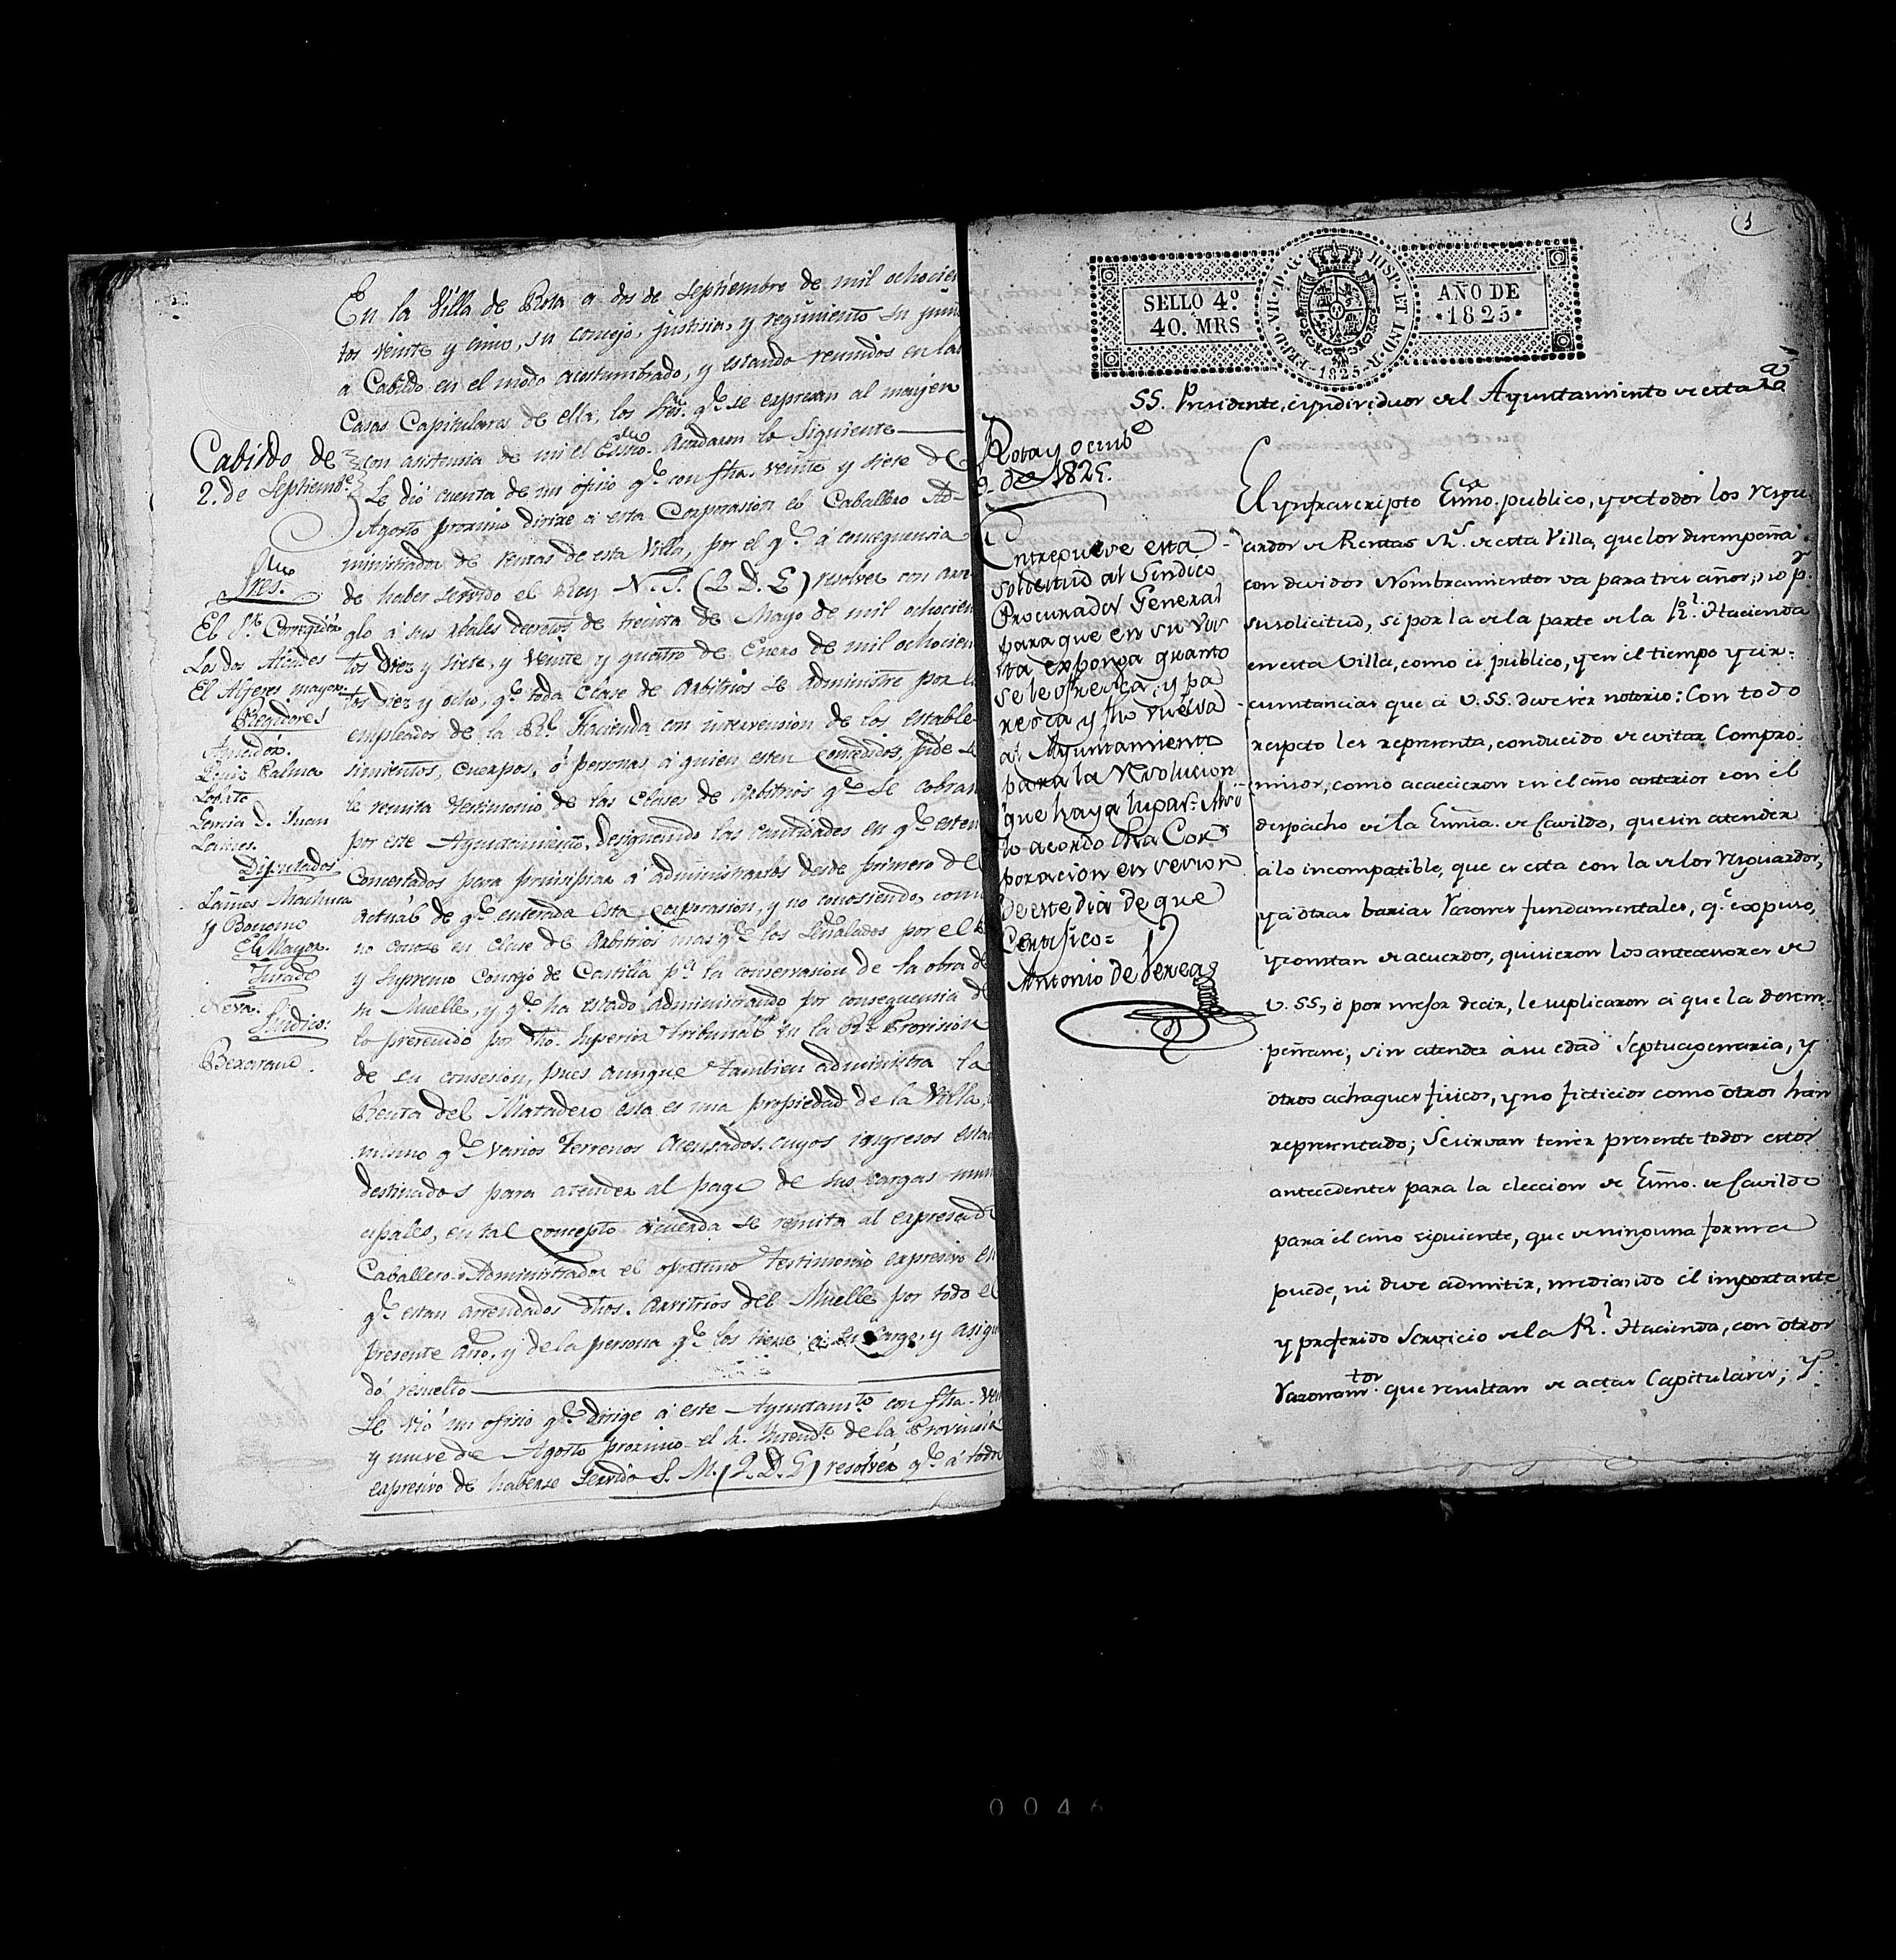 En la Villa de Rota a dos de Septiembre de mil ochocien
tos veinte y cinco, su concejo, justisia, y regimiento su jun
a Cabildo en el modo acostumbrado, y estando reunidos en las
Casas Capitulares de ella, los Sres. qe. se expresan al marjen
con asistensia de mi el Esno. Acordaron lo Siguiente
Cabildo de
2. de Septiembe.
Se dió cuenta de un ofisio qe. con fha. veinte y siete de
Agosto proximo dirixe á esta Corporasion el Caballero Ad-
ministrador de rentas de esta Villa, por el qe. á consequensia
de haber servido el Rey N. S. (Q. D. G.) resolver con arre-
glo á sus reales decretos de treinta de Mayo de mil ochocien
tos diez y siete, y veinte y quatro de Enero de mil ochocien
tos diez y ocho, qe. toda clase de arbitrios se administre por l
empleados de la Rl. Hacienda con intervension de los estable-
simientos, cuerpos, ó personas á quien esten consedidos, pide se
le remita testimonio de las clases de arbitrios qe. se cobran
por este Ayuntamiento, designando las cantidades en qe. esten
consertados para prinsipiar á administrarlos desde primero del
actual de qe. enterada esta corporasion, y no conosiendo, como
no conose en clase de Arbitrios mas qe. los señalados por el R
y Supremo Consejo de Castilla pa. la conservasion de la obra de
su Muelle, y qe. ha estado administrando por consequensia de
lo prevenido por dho. Superior tribunal en la Rl. Provision
de su consesion, pues aunque tambien administra la
Renta del Matadero esta es una propiedad de la Villa,
mismo qe. varios terrenos acensados cuyos ingresos estan
destinados para atender al pago de sus cargas muni
cipales, en tal concepto acuerda se remita al expresado
Caballero Administrador el oportuno testimonio expresivo en
qe. estan arrendados dhos. arvitrios del Muelle por todo el
presente año, y de la persona qe. los tiene á su cargo, y asi que
dó resuelto
Se vió un ofisio qe. dirige á este Ayuntamto. con fha. ve
y nueve de Agosto proximo el Sr. Intendte. de la Provinsia
expresivo de haberse servido S. M. (Q. D. G) resolver qe. á todos
Sres.
El Sr. Corregidor
Los dos Alcaldes
El Alferes mayor
Regidores
Amedor.
Luis Palma
Garcia D. Juan
Diputados
Laines Machuca
y Bonomo
El Mayor.
Jurado
Neva.
Sindico:
Bexarano.
5
SELLO 4º
40. MRS
FERD · VII · D · G · HISP · ET IND · R · 1825
AÑO DE
*1825*
SS. Presidente, é yndividuos del Ayuntamiento de esta Va.
Rota y Octube.
9. de 1825.
Entreguese esta
solicitud al Sindico
Procurador General
para que en su vis
ta exponga quanto
se le ofresca, y pa
resca y fho vuelva
al Ayuntamiento
para la resolucion
que haya lugar. Asi
lo acordó dha Cor
poracion en sesion
de este dia de que
Certifico=
Antonio de Perea
El ynfrascripto Essno. publico, y de todos los resgu-
ardos de Rentas Rs. de esta Villa, que los desempeña
con devidos Nombramientos va para tres años; no pr.
su solicitud, si por la de la parte de la Rl. Hacienda
en esta Villa, como es publico, y en el tiempo y cir-
cunstancias que á V.SS. deve ser notorio: Con todo
respeto les representa, conducido de evitar Compro-
misos, como acaecieron en el año anterior con el
despacho de la Essnia. de Cavildo, que sin atender
á lo incompatible, que es esta con la de los resguardos,
y á otras barias razones fundamentales, qe. expuso,
y constan de acuerdos, quisieron los antecesores de
V.SS, ó por mejor decir, le suplicaron á que la desem-
peñase; sin atender á su edad Septuagenaria, y
otros achaques ficicos, y no ficticios como otros han
representado; Se sirvan tener presente todos estos
antecedentes para la eleccion de Essno. de Cavildo
para el año siguiente, que de ninguna forma
puede, ni deve admitir, mediando el importante
y preferido Servicio de la Rl. Hacienda, con otros
razonamtos. que resultan de actas Capitulares; Y
0046